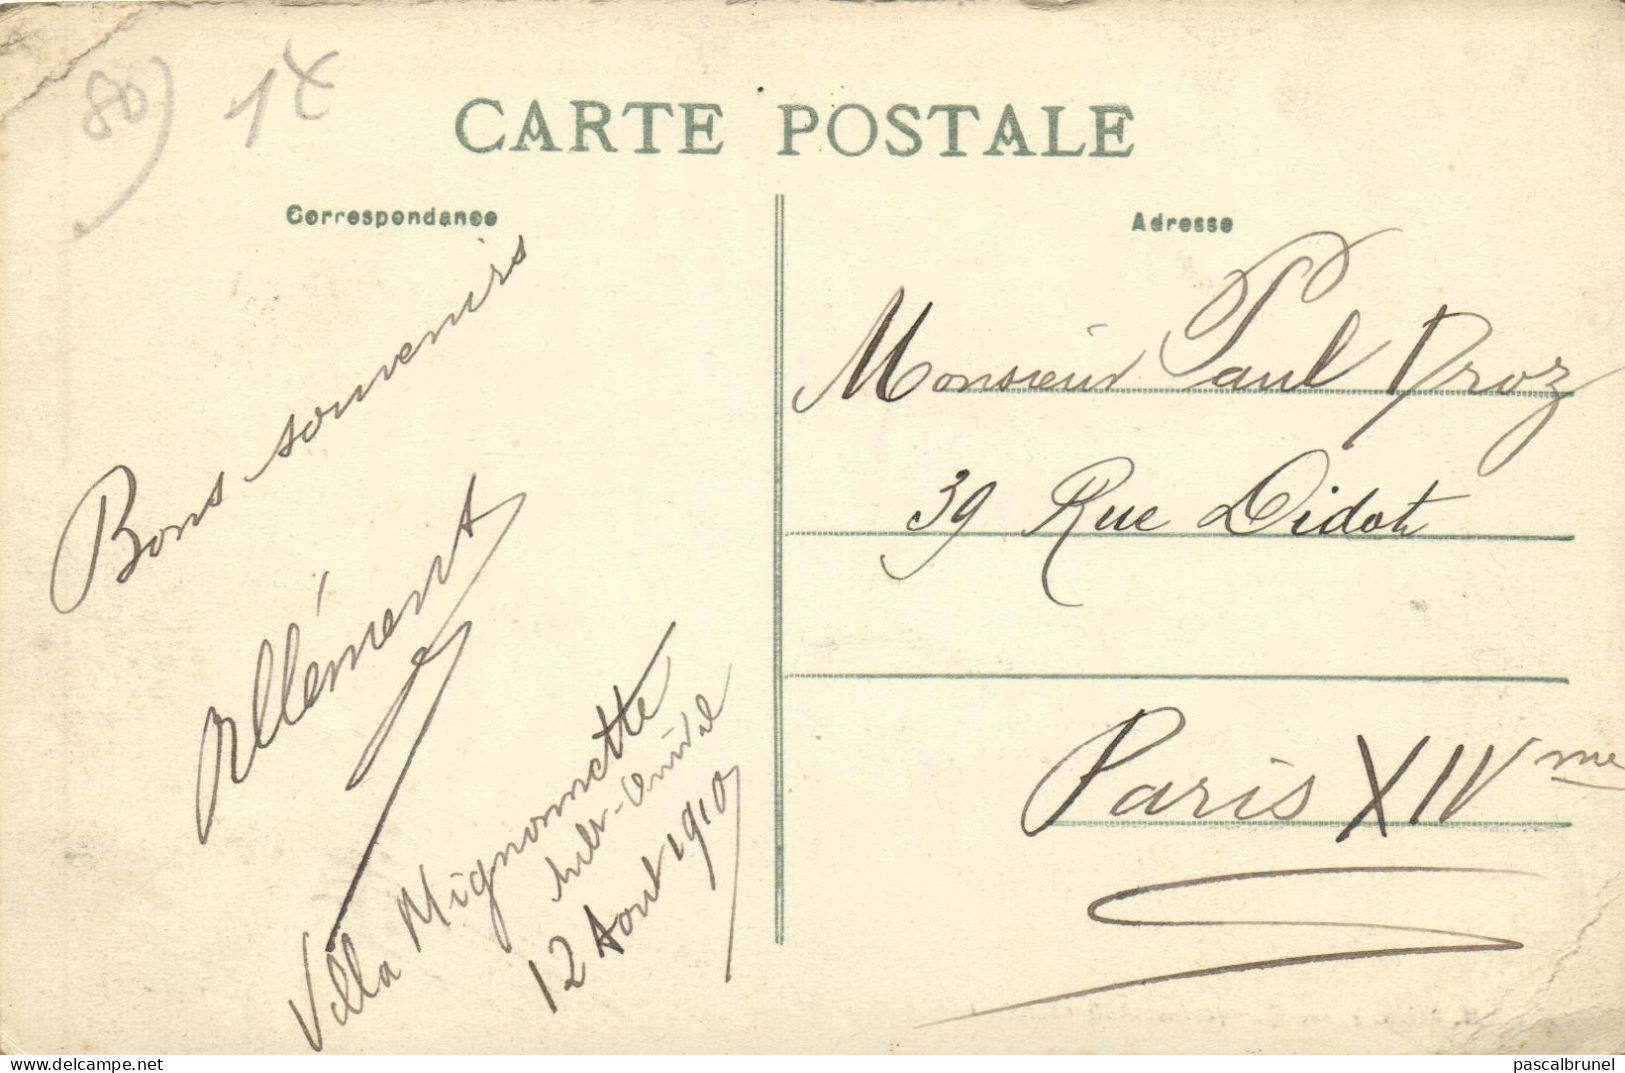 80) 1€
CARTE POSTALE
Correspondance
Bons souvenirs
Villa Mignonnette
12 Aout 1910
Adresse
Monsieur Paul Droz
39 Rue Didot
Paris XIVme
delcampe.net
pascalbrunel